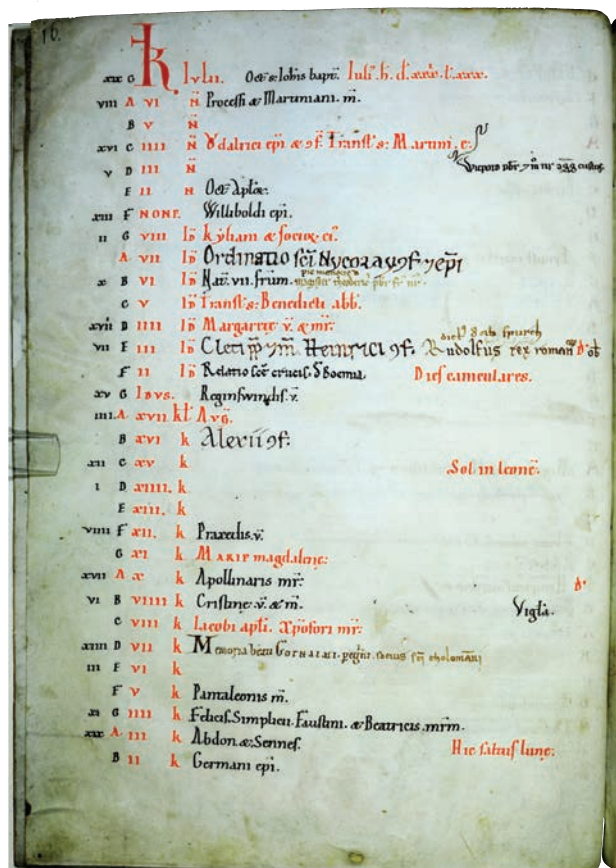 16.
xix G KL Iulii. Oct s Iohis bapt. Iuli h. d. xxxi. l. xxx.
viii A vi N Processi & Martiniani. m.
B v N
xvi C iiii N Ỽdalrici epi & 9f. Transl s Martini. e.
v D iii N
E ii N Oct Aplor.
xiii F NONE. Williboldi epi.
ii G viii Id kyliani & socior. ei.
A vii Id Ordinatio sci Nycolay 9f. 7 epi
x B vi Id Nat. vii. frum.
C v Id Transl s Benedicti abb.
xvii D iiii Id Margarete v. & mr.
vii E iii Id Cleti pp 7 m. Heinrici 9f. Rudolfus rex roman ob
F ii Id Relatio sce crucis. Dies caniculares.
xv G Idvs. Reginswindis. v.
iiii. A. xvii kl Avg.
B xvi k Alexii 9f.
xii C xv k Sol in leone.
i D xiiii. k
E xiii. k
viiii F xii. k Praxedis. v.
G xi k Marie magdalene.
xvii A x k Apollinaris mr.
vi B viiii k Cristine. v. & m. Vigla.
C viii k Iacobi apli. Xpofori mr.
xiiii D vii k Memoria beati
iii E vi k
F v k Pantaleonis m.
xi G iiii k Felicis. Simplicii. Faustini. & Beatricis. mrm.
xix A iii k Abdon. & Sennes. Hic saltus lune.
B ii k Germani epi.